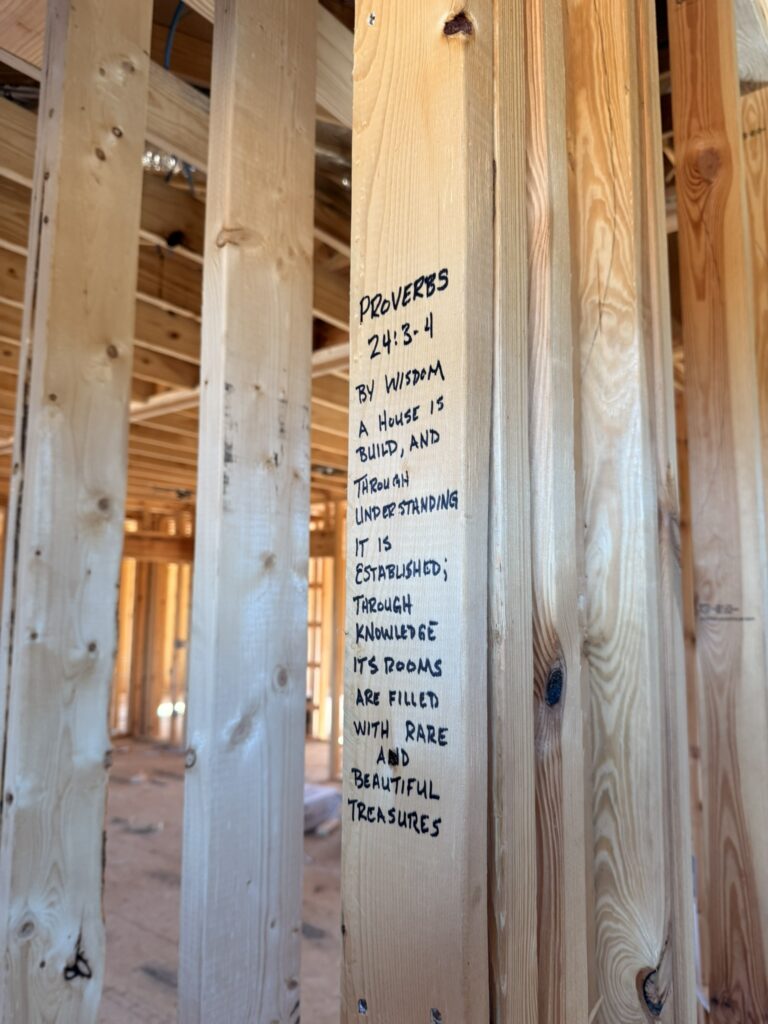 PROVERBS
24:3-4
BY WISDOM
A HOUSE IS
BUILD, AND
THROUGH
UNDERSTANDING
IT IS
ESTABLISHED;
THROUGH
KNOWLEDGE
ITS ROOMS
ARE FILLED
WITH RARE
AND
BEAUTIFUL
TREASURES